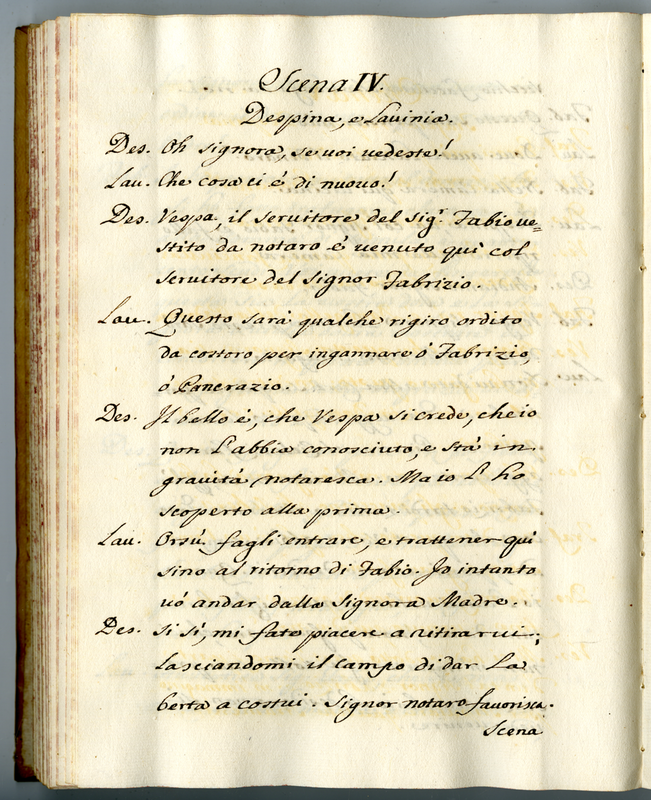 Scena IV.
Despina, e Lavinia.
Des. Oh signora, se voi vedeste!
Lau. Che cosa ci é di nuovo!
Des. Vespa, il servitore del sigr. Fabio ve=
stito da notaro é venuto quì col
servitore del signor Fabrizio.
Lau. Questo sará qualche rigiro ordito
da costoro per ingannare ó Fabrizio,
ó Pancrazio.
Des. Il bello é, che Vespa si crede, che io
non l'abbia conosciuto, e stá in
gravitá notaresca. Ma io l'ho
scoperto alla prima.
Lau. Orsú fagli entrare, e trattener quì
sino al ritorno di Fabio. Io intanto
vó andar dalla Signora Madre.
Des. Si sì, mi fate piacere a ritirarvi,
lasciandomi il campo di dar la
berta a costui. Signor notaro favorisca.
Scena